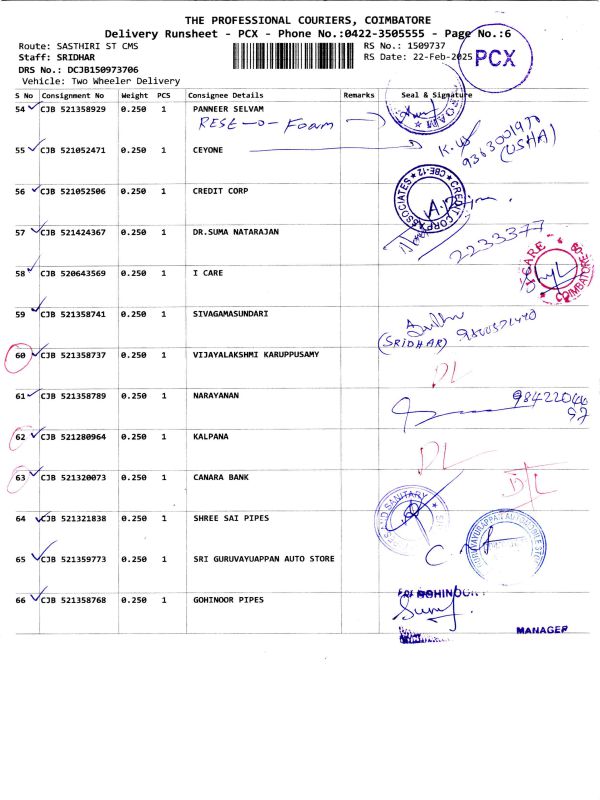 THE PROFESSIONAL COURIERS, COIMBATORE
Delivery Runsheet - PCX - Phone No.:0422-3505555 - Page No.:6
Route: SASTHIRI ST CMS RS No.: 1509737
Staff: SRIDHAR RS Date: 22-Feb-2025
PCX
DRS No.: DCJB150973706
Vehicle: Two Wheeler Delivery
S No Consignment No Weight PCS Consignee Details Remarks Seal & Signature
54 CJB 521358929 0.250 1 PANNEER SELVAM
RESE-O-Foam
55 CJB 521052471 0.250 1 CEYONE
9363001970
(USHA)
56 CJB 521052506 0.250 1 CREDIT CORP
CREDIT CORP ASSOCIATES CBE-12
57 CJB 521424367 0.250 1 DR.SUMA NATARAJAN
2233377
58 CJB 520643569 0.250 1 I CARE
I CARE COIMBATORE
59 CJB 521358741 0.250 1 SIVAGAMASUNDARI
(SRIDHAR)
60 CJB 521358737 0.250 1 VIJAYALAKSHMI KARUPPUSAMY
DL
61 CJB 521358789 0.250 1 NARAYANAN
62 CJB 521280964 0.250 1 KALPANA
DL
63 CJB 521320073 0.250 1 CANARA BANK
DL
64 CJB 521321838 0.250 1 SHREE SAI PIPES
AND SANITARY
65 CJB 521359773 0.250 1 SRI GURUVAYUAPPAN AUTO STORE
66 CJB 521358768 0.250 1 GOHINOOR PIPES
MANAGER